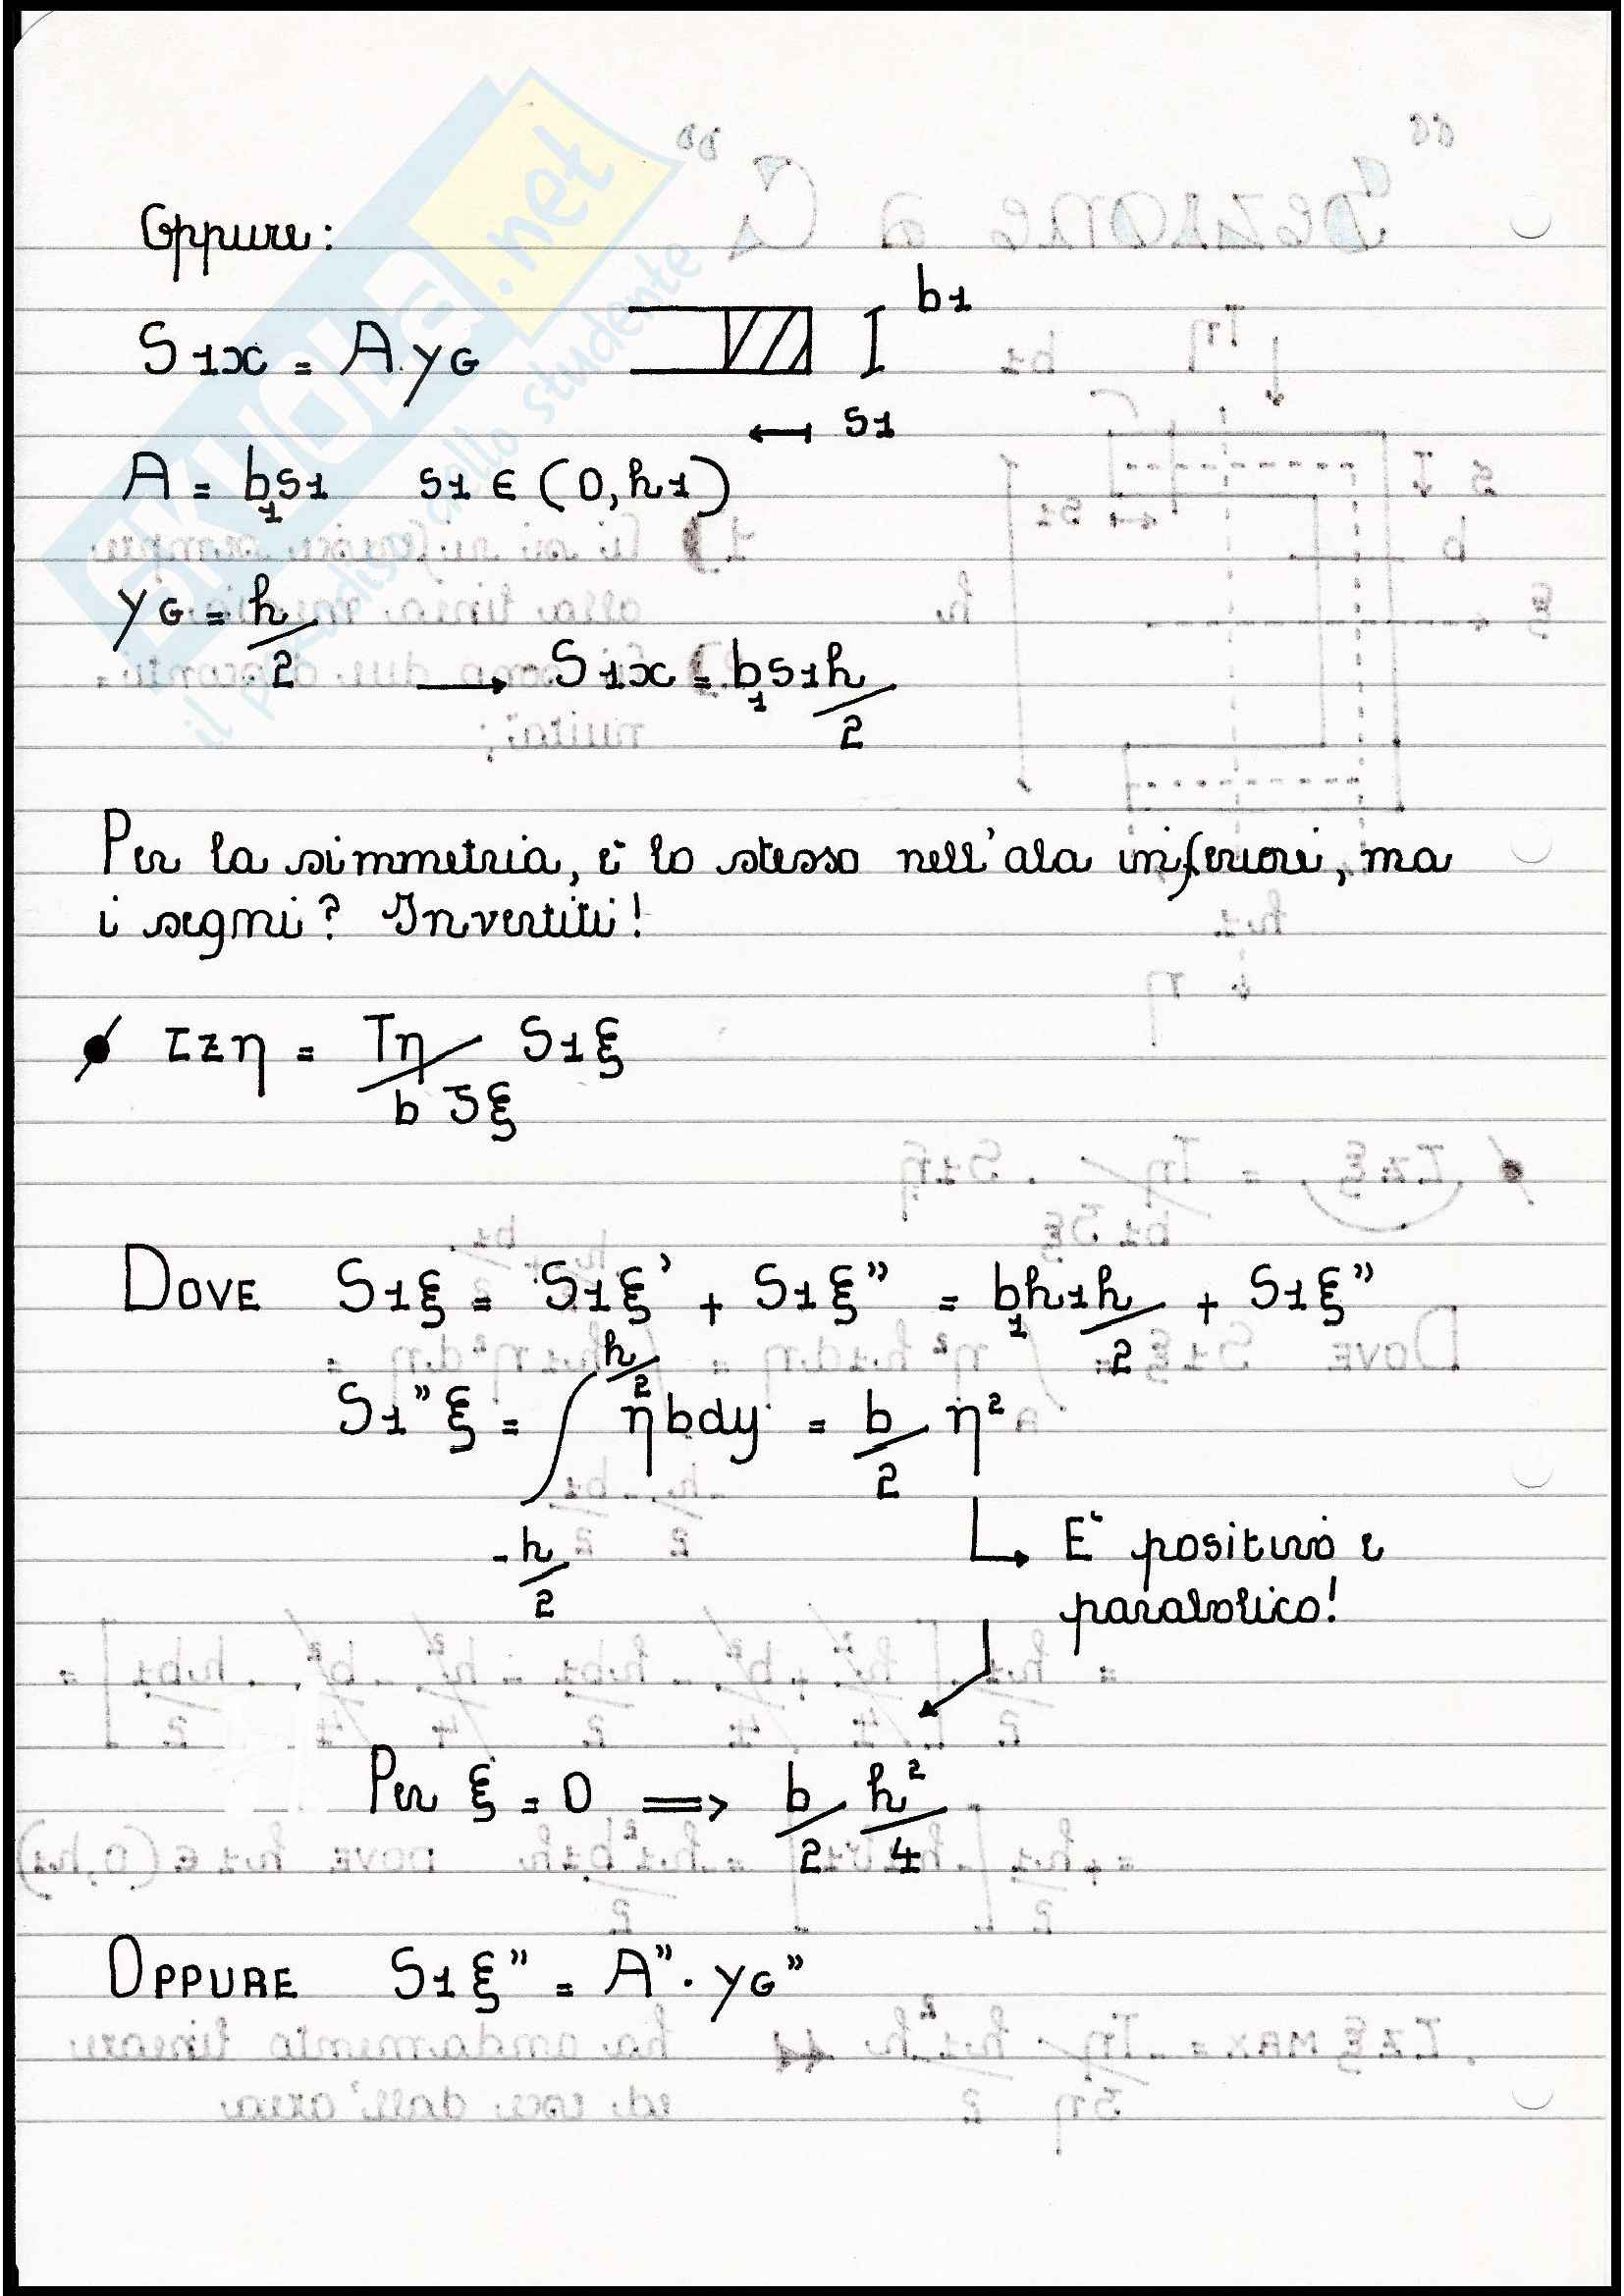 Oppure:
S1x = A·yG
b1
s1
A = b1s1 s1 ∈ (0, h1)
yG = h/2 → S1x = b1s1h/2
Per la simmetria, è lo stesso nell'ala inferiore, ma
i segni? Invertiti!
τzη = Tη/bJξ S1ξ
DOVE S1ξ = S1ξ' + S1ξ'' = b1h1h/2 + S1ξ''
S1''ξ = ∫ -h/2 h/2 ηbdy = b/2 η²
E' positivo e
parabolico!
Per ξ = 0 ⟹ b/2 h²/4
OPPURE S1ξ'' = A''·yG''
SKUOLA.net
il paradiso dello studente